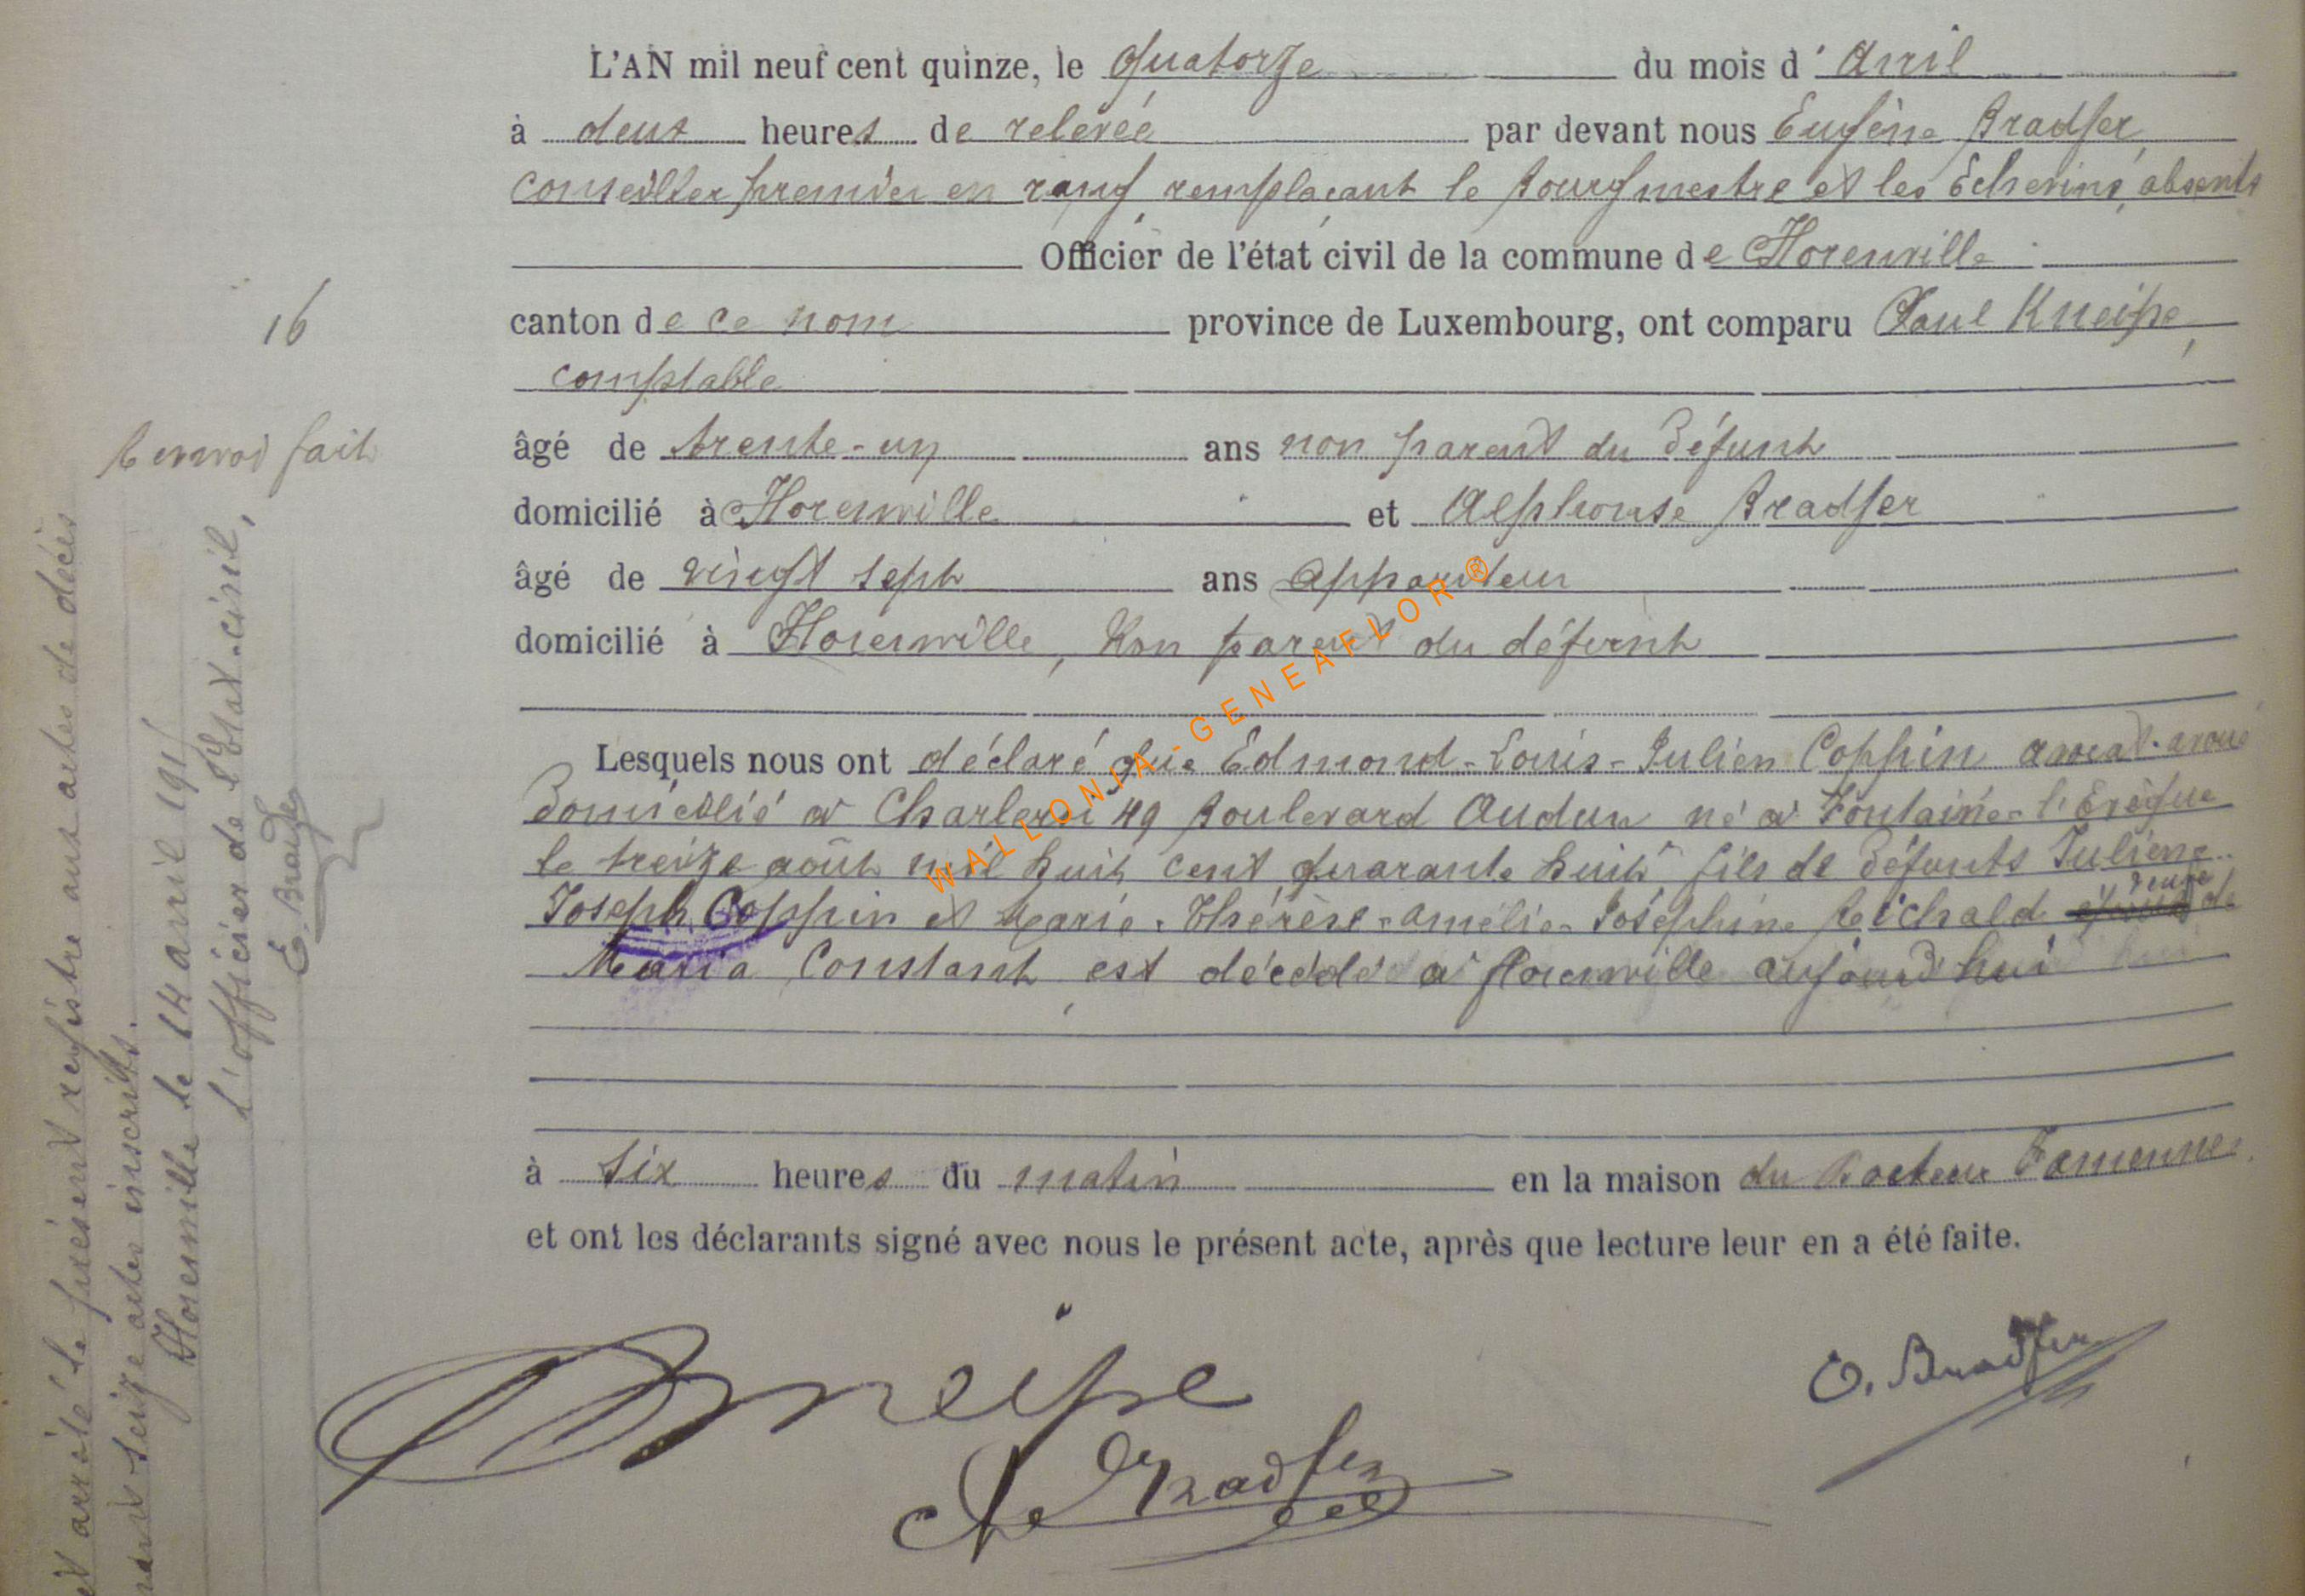 L'AN mil neuf cent quinze, le quatorze du mois d'avril
à deux heures de relevée par devant nous Eugène Bradfer,
conseiller premier en rang remplaçant le bourgmestre et les Echevins, absents
Officier de l'état civil de la commune de Florenville
canton de ce nom province de Luxembourg, ont comparu Paul Kneipe,
comptable
âgé de trente-un ans non parent du défunt
domicilié à Florenville et Alphonse Bradfer
âgé de vingt sept ans appariteur
domicilié à Florenville, Non parent du défunt
Lesquels nous ont déclaré que Edmond-Louis-Julien Coppin avocat-avoué
domicilié à Charleroi 49 boulevard Audun né à Fontaine-l'Evêque
le treize août mil huit cent quarante huit fils de défunts Julien-
Joseph Coppin et Marie-Thérèse-Amélie-Joséphine Reichald veuf de
Maria Constant, est décédé à florenville aujourd'hui
à six heures du matin en la maison du Docteur Famenne.
et ont les déclarants signé avec nous le présent acte, après que lecture leur en a été faite.
Kneipe
A Bradfer
E. Bradfer
16
Renvoi fait
et arrêté le présent registre aux actes de décès
seize actes inscrits.
Florenville le 14 avril 1915
L'officier de l'Etat-civil,
E. Bradfer
WALLONIA-GENEAFLOR®